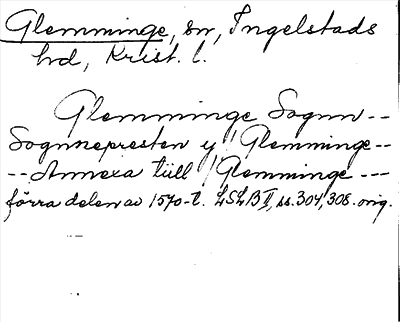 Glemminge, sn, Ingelstads
hd, Krist. l.
Glemminge Sognn--
Sognnepresten y / Glemminge--
--Annexa tüll / Glemminge ---
förra delen av 1570-t. LSLB II, ss. 304, 308. orig.